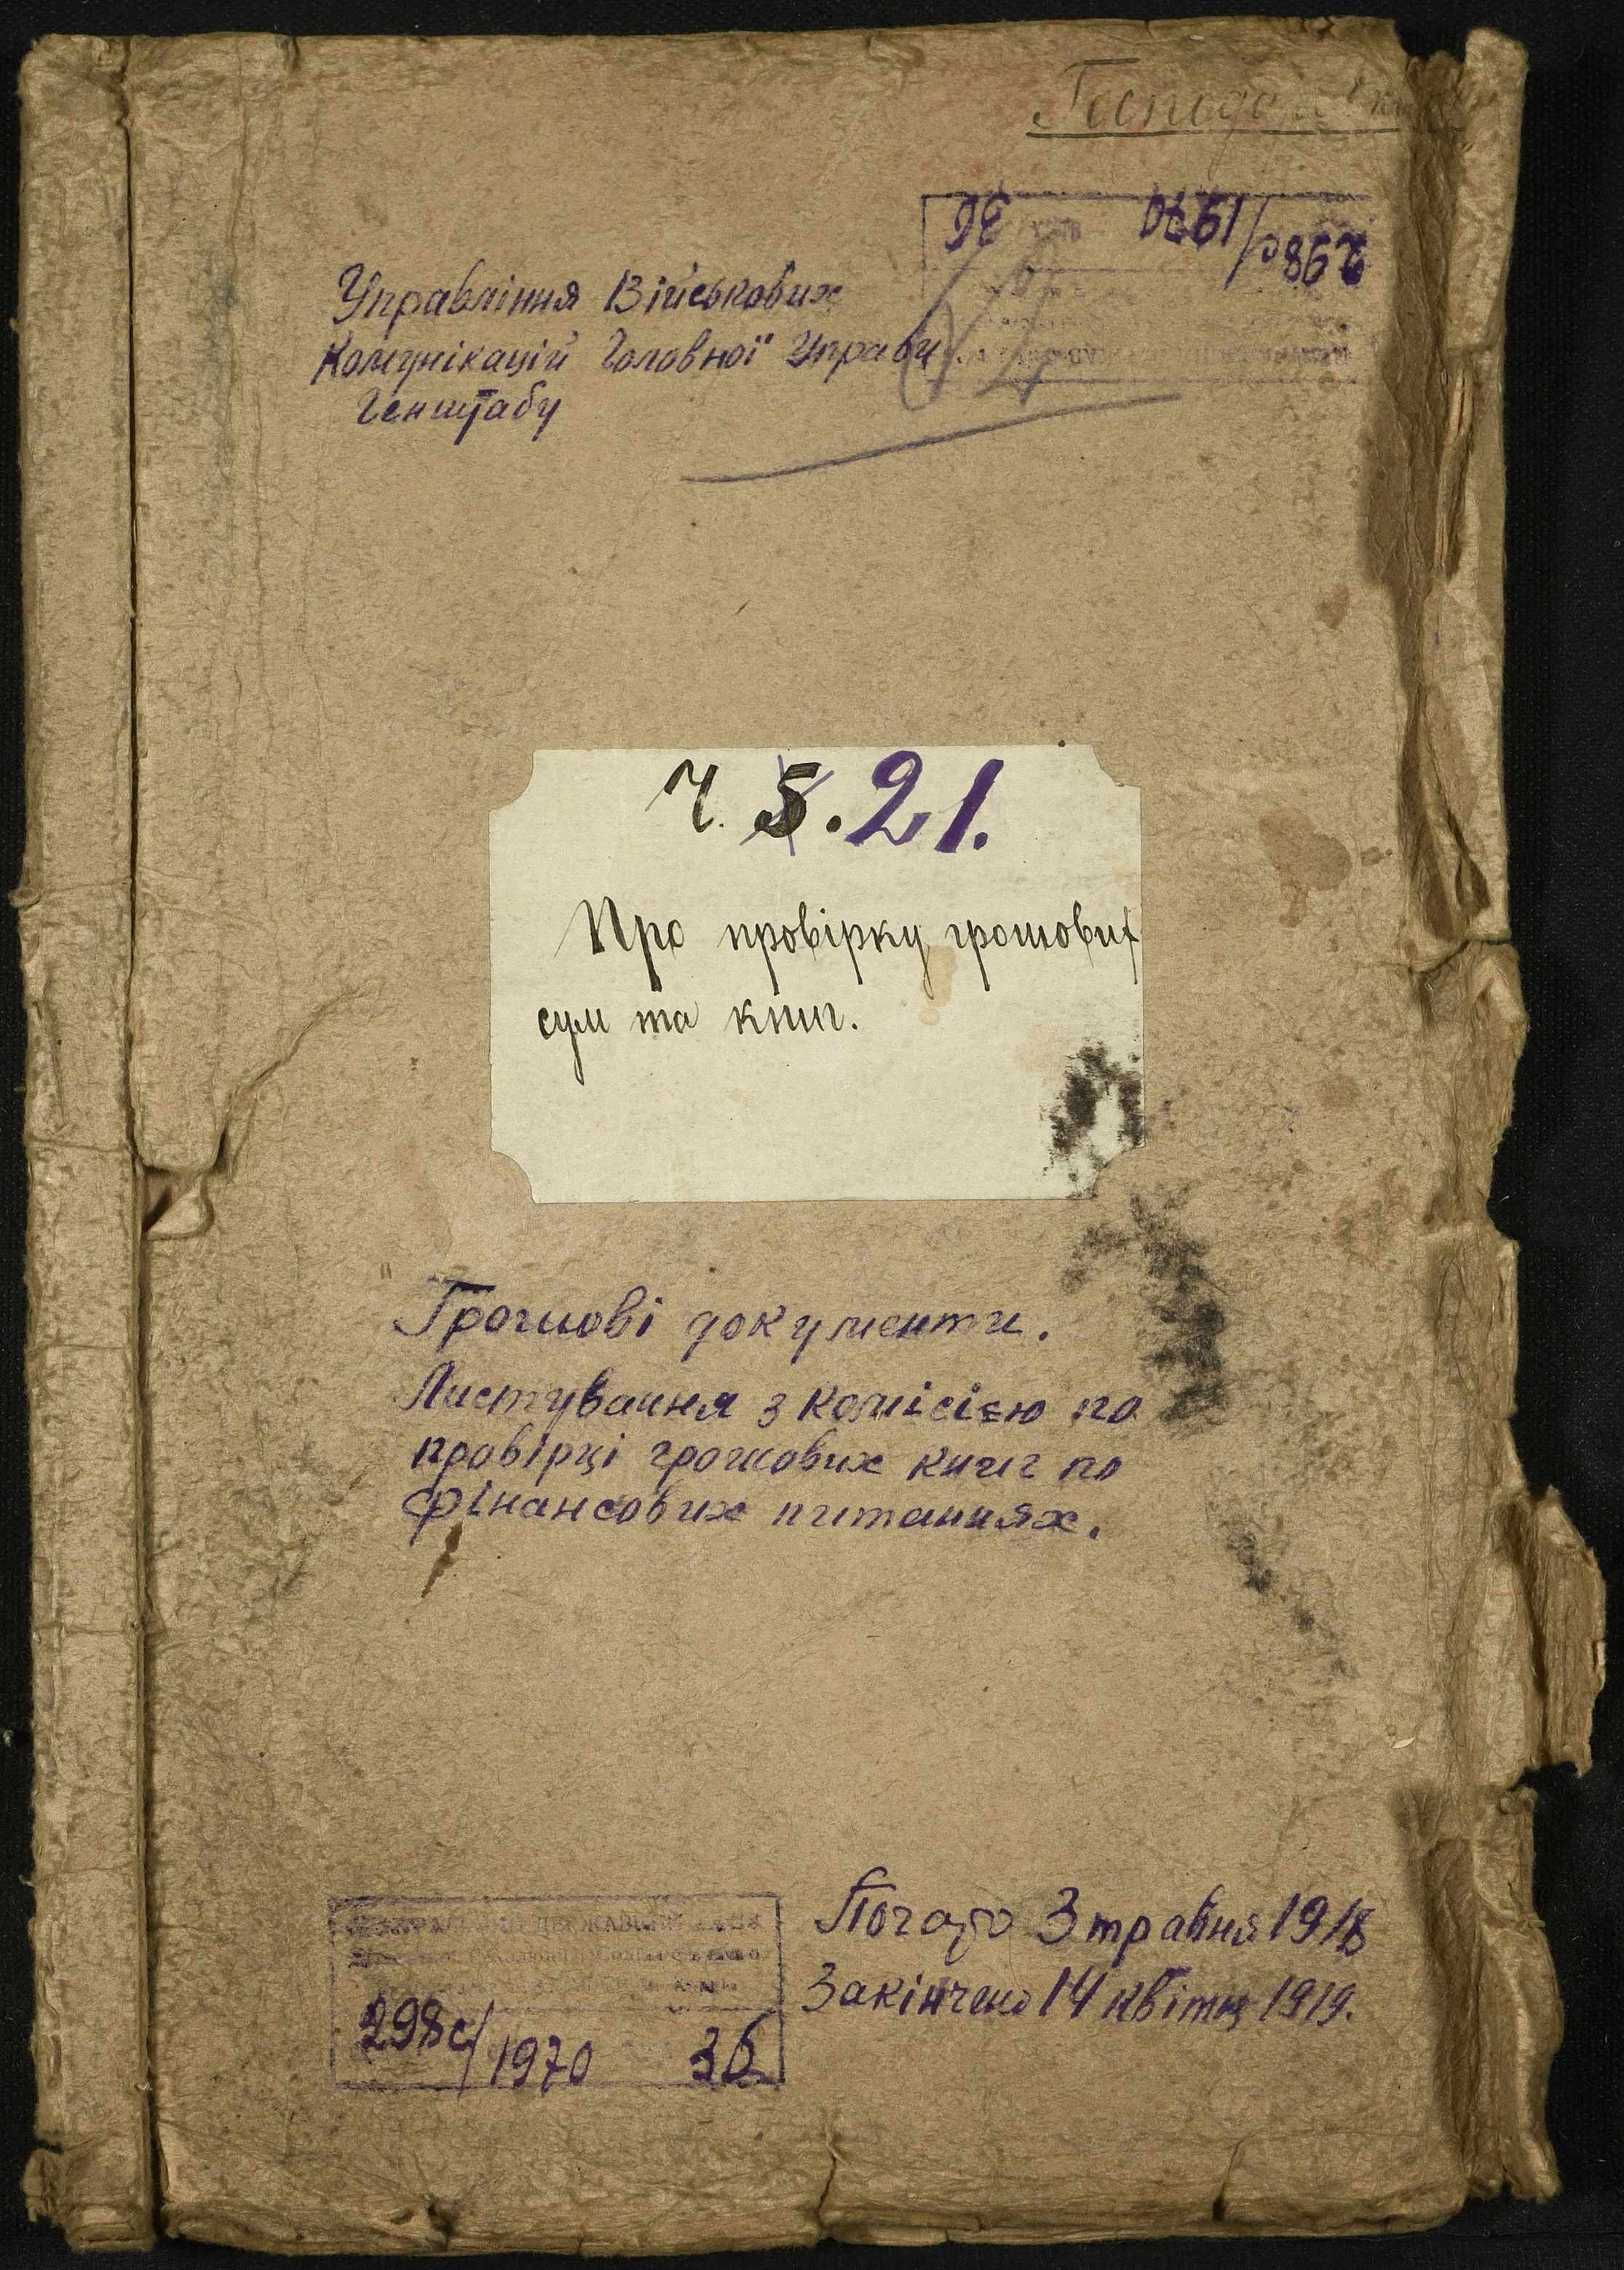 36 1970/298с
Управління Військових
Комунікацій Головної Управи
Генштабу
Ч. 5. 21.
Про провірку грошових
сум та книг.
Грошові документи.
Листування з комісією по
провірці грошових книг по
фінансових питаннях.
Почато 3 травня 1918
Закінчено 14 квітня 1919.
298с/1970 36